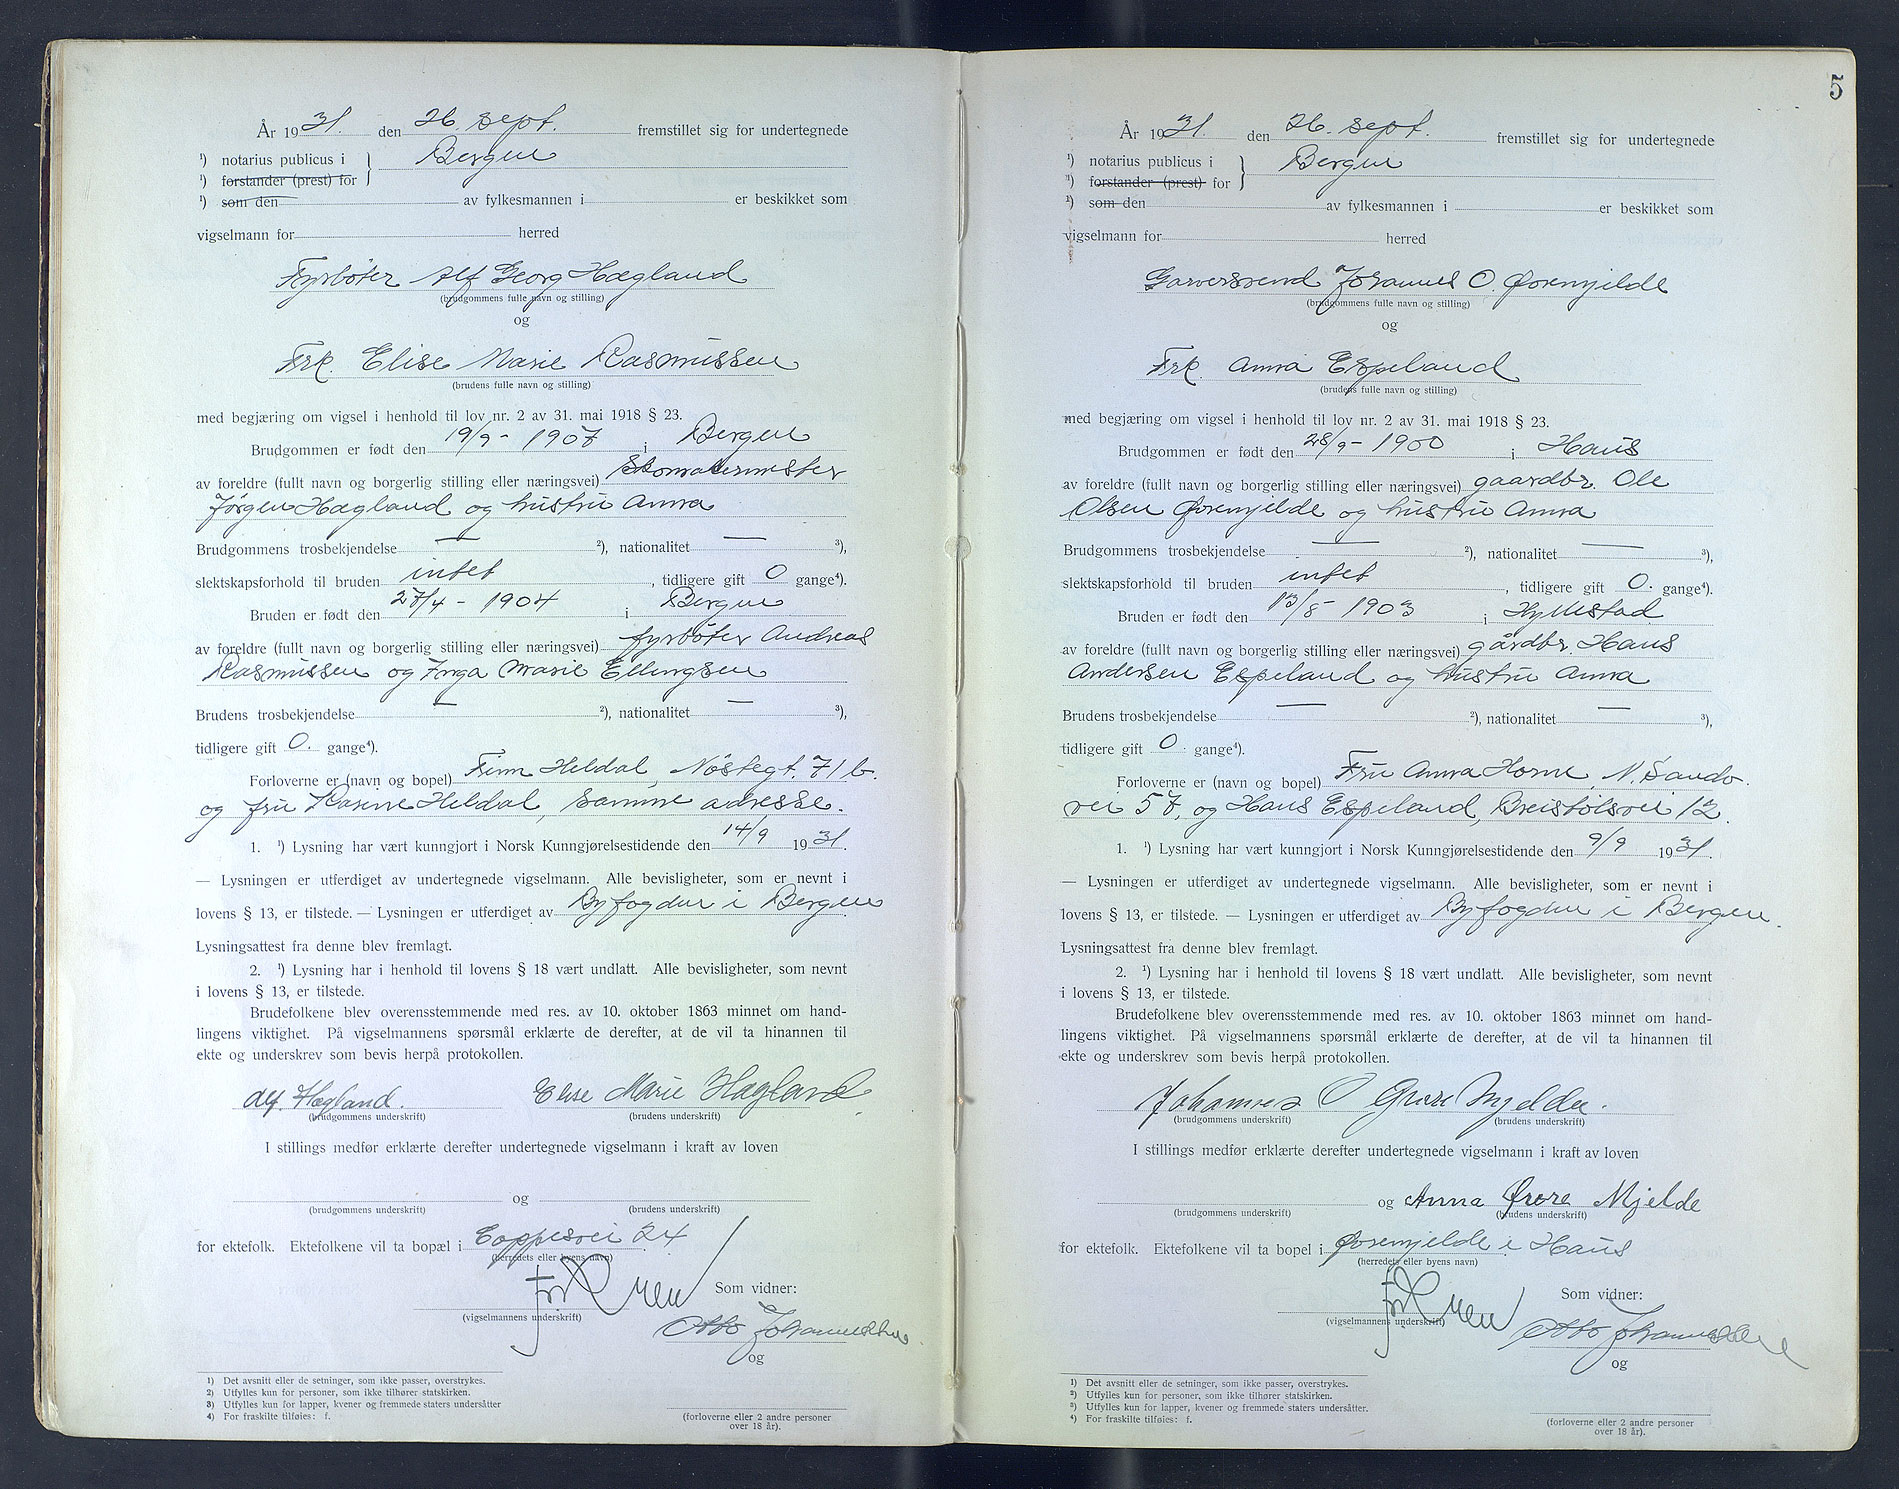 År 1931. den 26. sept. fremstillet sig for undertegnede
¹) notarius publicus i } Bergen
¹) forstander (prest) for
¹) som den av fylkesmannen i er beskikket som
vigselmann for herred
Fyrbøter Alf Georg Hægland
(brudgommens fulle navn og stilling)
og
Frk. Elise Marie Rasmussen
(brudens fulle navn og stilling)
med begjæring om vigsel i henhold til lov nr. 2 av 31. mai 1918 § 23.
Brudgommen er født den 19/9 - 1907 i Bergen
av foreldre (fullt navn og borgerlig stilling eller næringsvei) Skomakermester
Jørgen Hægland og hustru Anna
Brudgommens trosbekjendelse — ²), nationalitet — ³),
slektskapsforhold til bruden intet, tidligere gift 0 gange⁴).
Bruden er født den 27/4 - 1904 i Bergen
av foreldre (fullt navn og borgerlig stilling eller næringsvei) fyrbøter Andreas
Rasmussen og Inga Marie Ellingsen
Brudens trosbekjendelse — ²), nationalitet — ³),
tidligere gift 0. gange⁴).
Forloverne er (navn og bopel) Finn Heldal, Nøstegt. 71 b.
og fru Rasine Heldal, samme adresse.
1. ¹) Lysning har vært kunngjort i Norsk Kunngjørelsestidende den 14/9 1931.
— Lysningen er utferdiget av undertegnede vigselmann. Alle bevisligheter, som er nevnt i
lovens § 13, er tilstede. — Lysningen er utferdiget av Byfogden i Bergen
Lysningsattest fra denne blev fremlagt.
2. ¹) Lysning har i henhold til lovens § 18 vært undlatt. Alle bevisligheter, som nevnt
i lovens § 13, er tilstede.
Brudefolkene blev overensstemmende med res. av 10. oktober 1863 minnet om hand-
lingens viktighet. På vigselmannens spørsmål erklærte de derefter, at de vil ta hinannen til
ekte og underskrev som bevis herpå protokollen.
Alf. Hægland. Elise Marie Hægland.
(brudgommens underskrift) (brudens underskrift)
I stillings medfør erklærte derefter undertegnede vigselmann i kraft av loven
og
(brudgommens underskrift) (brudens underskrift)
for ektefolk. Ektefolkene vil ta bopæl i Coppesvei 24
(herredets eller byens navn)
Som vidner:
(vigselmannens underskrift)
Otto Johannessen
og
¹) Det avsnitt eller de setninger, som ikke passer, overstrykes.
²) Utfylles kun for personer, som ikke tilhører statskirken.
³) Utfylles kun for lapper, kvener og fremmede staters undersåtter
⁴) For fraskilte tilføies: f.
(forloverne eller 2 andre personer
over 18 år).
5
År 1931. den 26. sept. fremstillet sig for undertegnede
¹) notarius publicus i } Bergen
¹) forstander (prest) for
¹) som den av fylkesmannen i er beskikket som
vigselmann for herred
Garversvend Johannes O. Øvremjelde
(brudgommens fulle navn og stilling)
og
Frk. Anna Espeland
(brudens fulle navn og stilling)
med begjæring om vigsel i henhold til lov nr. 2 av 31. mai 1918 § 23.
Brudgommen er født den 28/9 - 1900 i Haus
av foreldre (fullt navn og borgerlig stilling eller næringsvei) gaardbr. Ole
Olsen Øvremjelde og hustru Anna
Brudgommens trosbekjendelse — ²), nationalitet — ³),
slektskapsforhold til bruden intet, tidligere gift 0. gange⁴).
Bruden er født den 13/8 - 1903 i Hyllestad
av foreldre (fullt navn og borgerlig stilling eller næringsvei) gårdbr. Hans
Andersen Espeland og hustru Anna
Brudens trosbekjendelse — ²), nationalitet — ³),
tidligere gift 0. gange⁴).
Forloverne er (navn og bopel) Fru Anna Horne, N. Sandv.
vei 57, og Hans Espeland, Breistølsvei 12.
1. ¹) Lysning har vært kunngjort i Norsk Kunngjørelsestidende den 9/9 1931.
— Lysningen er utferdiget av undertegnede vigselmann. Alle bevisligheter, som er nevnt i
lovens § 13, er tilstede. — Lysningen er utferdiget av Byfogden i Bergen.
Lysningsattest fra denne blev fremlagt.
2. ¹) Lysning har i henhold til lovens § 18 vært undlatt. Alle bevisligheter, som nevnt
i lovens § 13, er tilstede.
Brudefolkene blev overensstemmende med res. av 10. oktober 1863 minnet om hand-
lingens viktighet. På vigselmannens spørsmål erklærte de derefter, at de vil ta hinannen til
ekte og underskrev som bevis herpå protokollen.
Johannes O Øvre Mjelde.
(brudgommens underskrift) (brudens underskrift)
I stillings medfør erklærte derefter undertegnede vigselmann i kraft av loven
og Anna Øvre Mjelde
(brudgommens underskrift) (brudens underskrift)
for ektefolk. Ektefolkene vil ta bopel i Øvremjelde i Haus
(herredets eller byens navn)
Som vidner:
(vigselmannens underskrift)
Otto Johannessen
og
¹) Det avsnitt eller de setninger, som ikke passer, overstrykes.
²) Utfylles kun for personer, som ikke tilhører statskirken.
³) Utfylles kun for lapper, kvener og fremmede staters undersåtter.
⁴) For fraskilte tilføies: f.
(forloverne eller 2 andre personer
over 18 år).